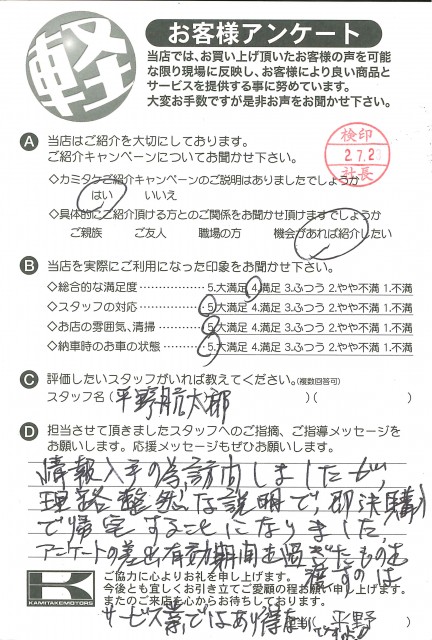 軽
お客様アンケート
当店では、お買い上げ頂いたお客様の声を可能
な限り現場に反映し、お客様により良い商品と
サービスを提供する事に努めています。
大変お手数ですが是非お声をお聞かせ下さい。
A 当店はご紹介を大切にしております。
ご紹介キャンペーンについてお聞かせ下さい。
検印
2.7.2
社長
◇カミタケご紹介キャンペーンのご説明はありましたでしょうか
はい いいえ
◇具体的にご紹介頂ける方とのご関係をお聞かせ頂けますでしょうか
ご親族 ご友人 職場の方 機会があれば紹介したい
B 当店を実際にご利用になった印象をお聞かせ下さい。
◇総合的な満足度 5.大満足 4.満足 3.ふつう 2.やや不満 1.不満
◇スタッフの対応 5.大満足 4.満足 3.ふつう 2.やや不満 1.不満
◇お店の雰囲気、清掃 5.大満足 4.満足 3.ふつう 2.やや不満 1.不満
◇納車時のお車の状態 5.大満足 4.満足 3.ふつう 2.やや不満 1.不満
C 評価したいスタッフがいれば教えてください。(複数回答可)
スタッフ名( 平野航太郎 )( )
D 担当させて頂きましたスタッフへのご指摘、ご指導メッセージを
お願いします。応援メッセージもぜひお願いします。
情報入手の為訪問しましたが、
理路整然な説明で、即決購入
で帰宅することになりました。
アンケートの差出有効期間を過ぎたものを
渡すのは
サービス業ではあり得ません
K
KAMITAKEMOTORS
ご協力に心よりお礼を申し上げます。
今後とも宜しくお引き立てご愛顧の程お願い申し上げます。
またのご来店を心からお待ちしております。
担当( 平野